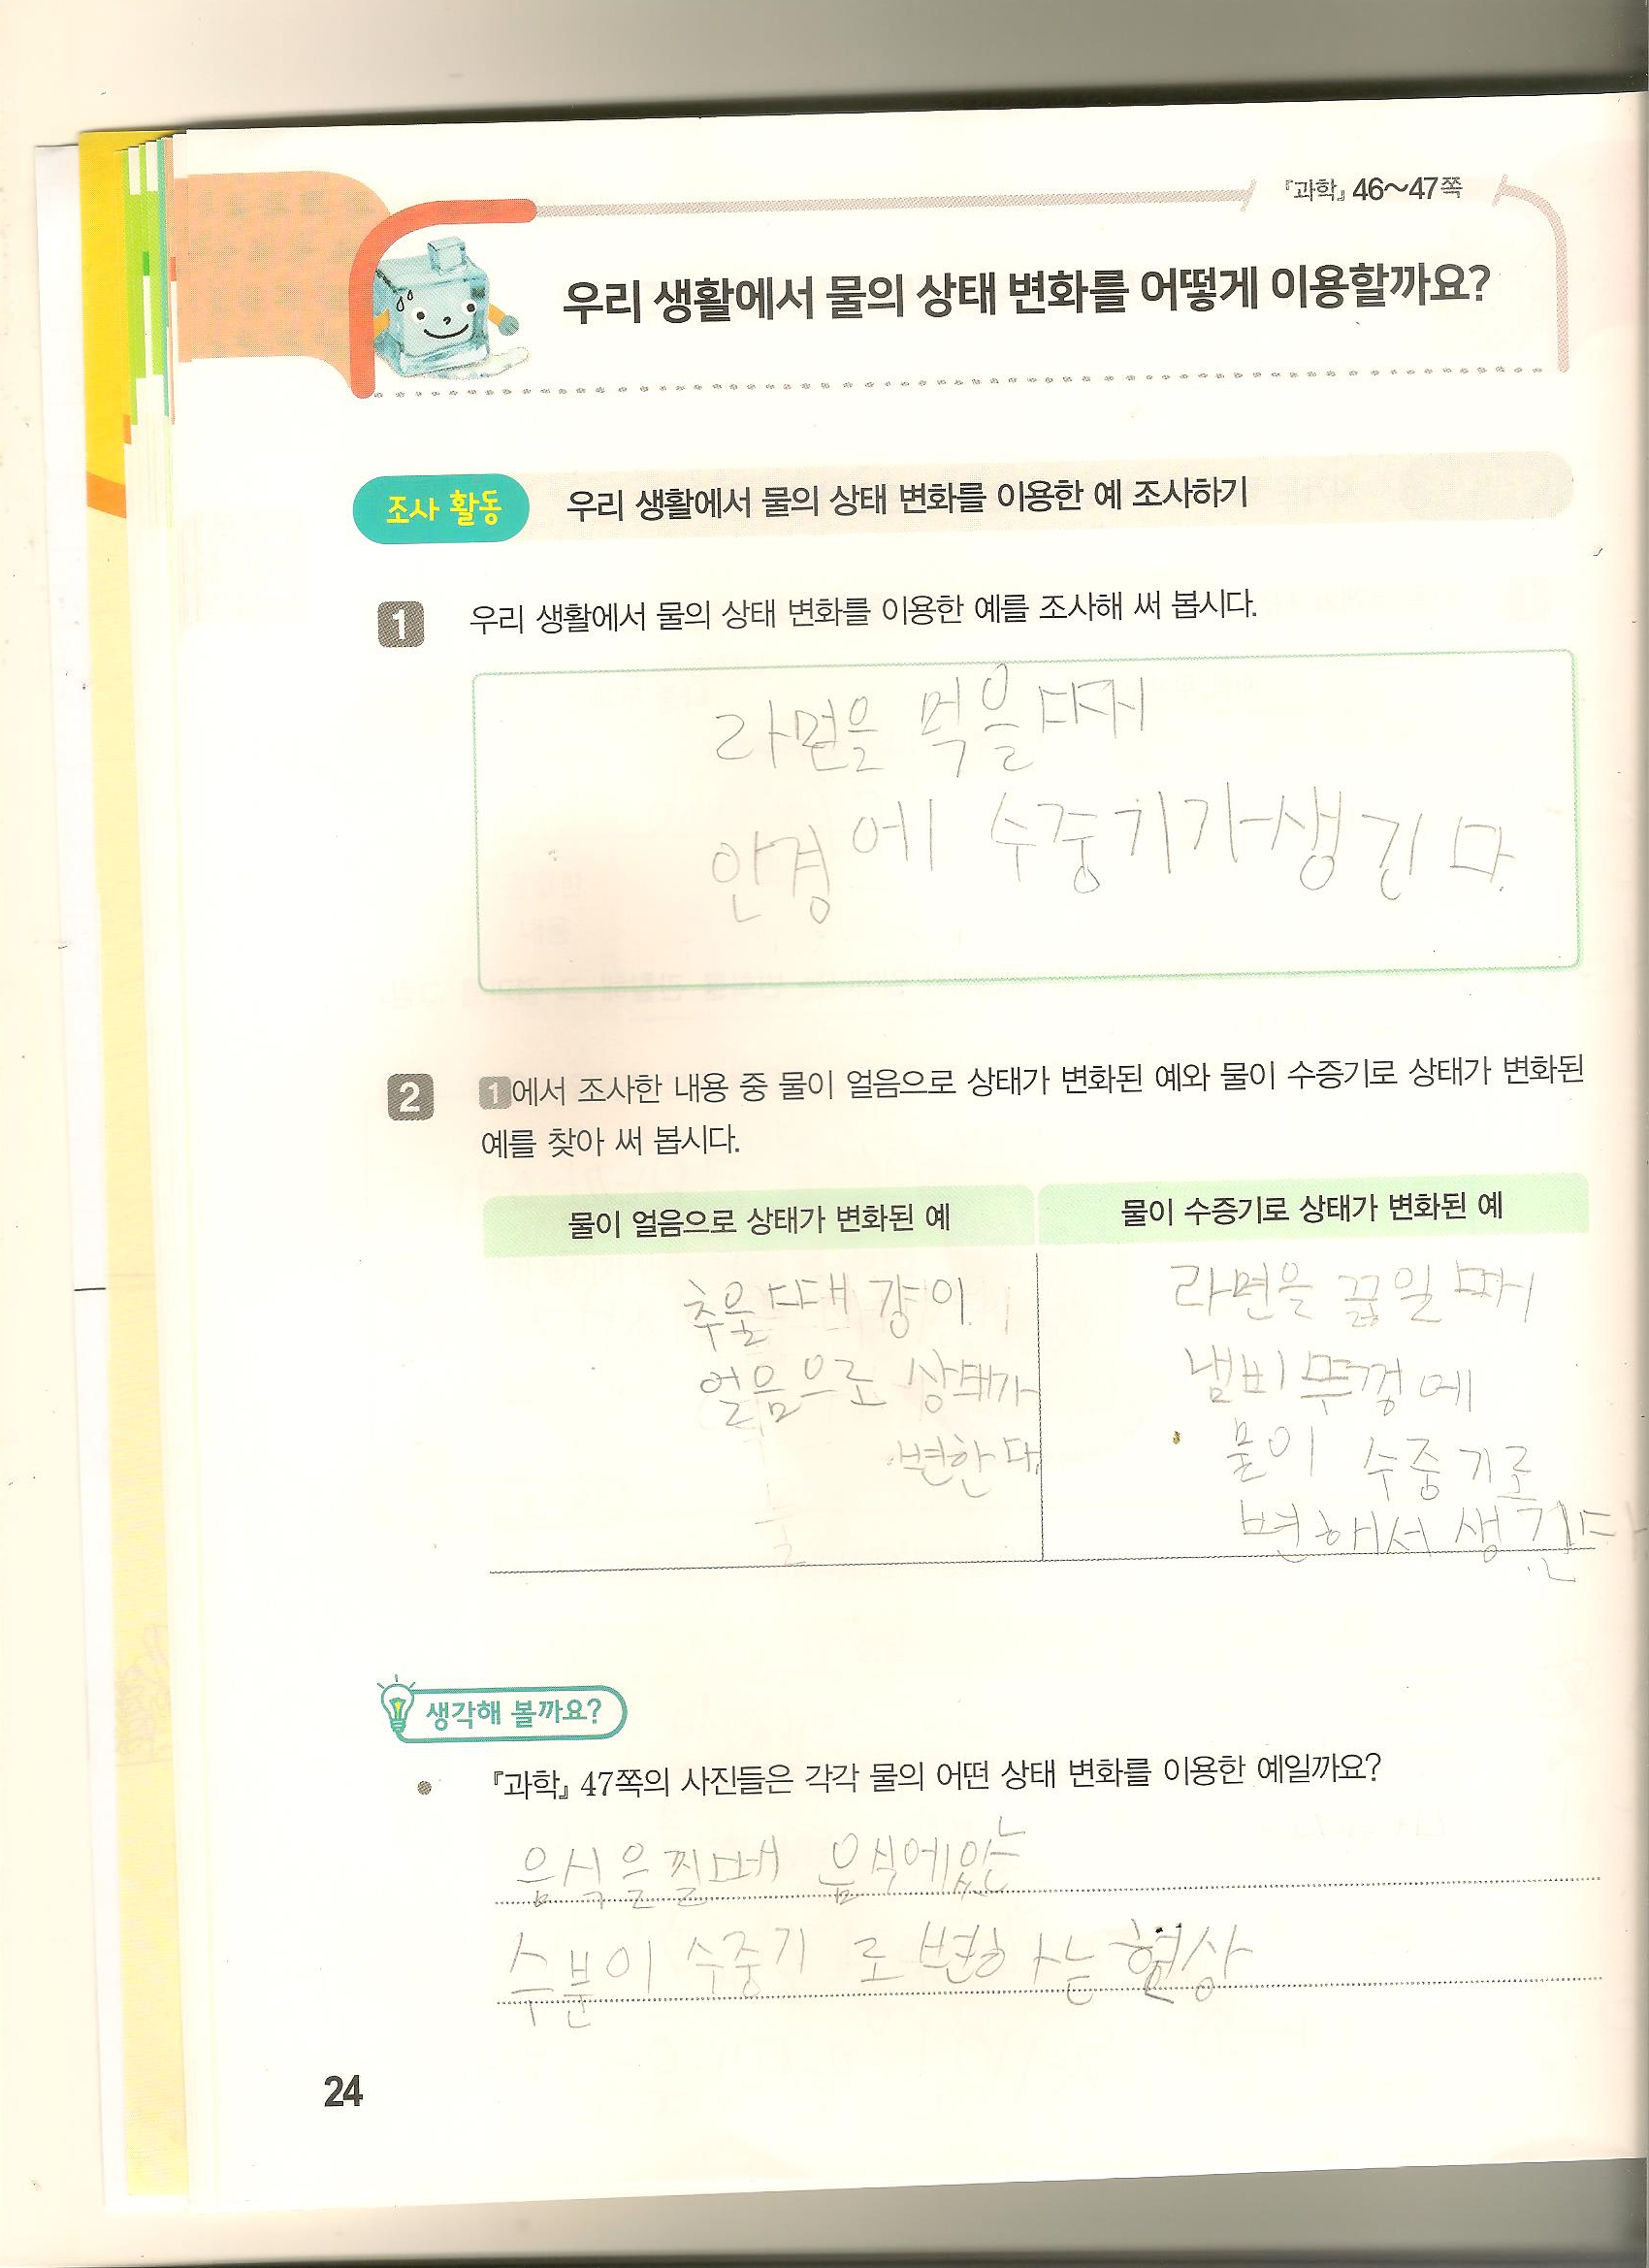 『과학』 46~47쪽
우리 생활에서 물의 상태 변화를 어떻게 이용할까요?
조사 활동 우리 생활에서 물의 상태 변화를 이용한 예 조사하기
1 우리 생활에서 물의 상태 변화를 이용한 예를 조사해 써 봅시다.
라면을 먹을 때
안경에 수중기가 생긴다.
2 1에서 조사한 내용 중 물이 얼음으로 상태가 변화된 예와 물이 수증기로 상태가 변화된
예를 찾아 써 봅시다.
물이 얼음으로 상태가 변화된 예
추울 때 강이
얼음으로 상태가
변한다.
물이 수증기로 상태가 변화된 예
라면을 끓일 때
냄비 뚜껑에
물이 수중기로
변해서 생긴다
생각해 볼까요?
• 『과학』 47쪽의 사진들은 각각 물의 어떤 상태 변화를 이용한 예일까요?
음식을 찔 때 음식에 있는
수분이 수중기로 변하는 현상
24